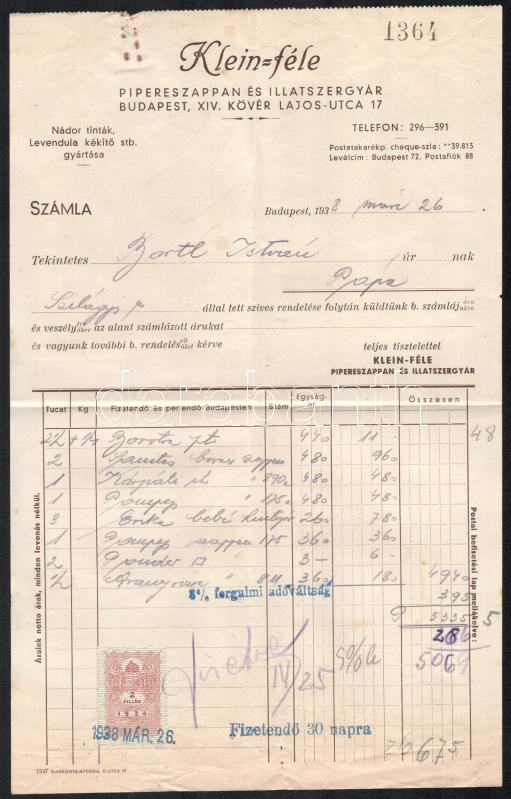 1364
Klein=féle
PIPERESZAPPAN ÉS ILLATSZERGYÁR
BUDAPEST, XIV. KÖVÉR LAJOS-UTCA 17
Nádor tinták,
Levendula kékítő stb.
gyártása
TELEFON: 296—391
Postatakarékp. cheque-szla: **39.813
Levélcím: Budapest 72. Postafiók 88
SZÁMLA
Budapest, 1938 márc 26
Tekintetes Bortl István úr nak
Pápa
Szilágyi által tett szíves rendelése folytán küldtünk b. számláj
és veszély az alant számlázott árukat
és vagyunk további b. rendelés kérve
teljes tisztelettel
KLEIN-FÉLE
PIPERESZAPPAN ÉS ILLATSZERGYÁR
Tucat Kg Fizetendő és perlendő Budapesten Szám Egység-ár Összesen
Borotva 440 11 — 48
2 borax 480 960
1 Kárpáti 480 480
1 Pompey 175 480 480
3 Erika bebé 260 780
1 Pompey szappan 175 360 360
2 Pouder 3— 6—
1/2 Aranyvirá 360 180 4940
3% forgalmi adóváltság 395
P 5335 5
286
5% 5069
IV/25
2 FILLÉR
1934
1938 MÁR. 26.
Fizetendő 30 napra
675
Áraink netto árak, minden levonás nélkül.
Postai befizetési lap mellékelve:
darabanth
1947 MARKOVITS-NYOMDA, Ó-UTCA 17